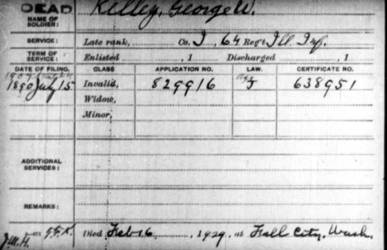 DEAD Kelley, George W.
NAME OF SOLDIER:
SERVICE: Late rank, Co. I, 64 Reg't Ill. Inf.
TERM OF SERVICE: Enlisted , 1 Discharged , 1
DATE OF FILING. CLASS. APPLICATION NO. LAW. CERTIFICATE NO.
1890 July 15 Invalid, 829916 638951
Widow,
Minor,
ADDITIONAL SERVICES:
REMARKS:
Died Feb 16, 1929, at Fall City, Wash.